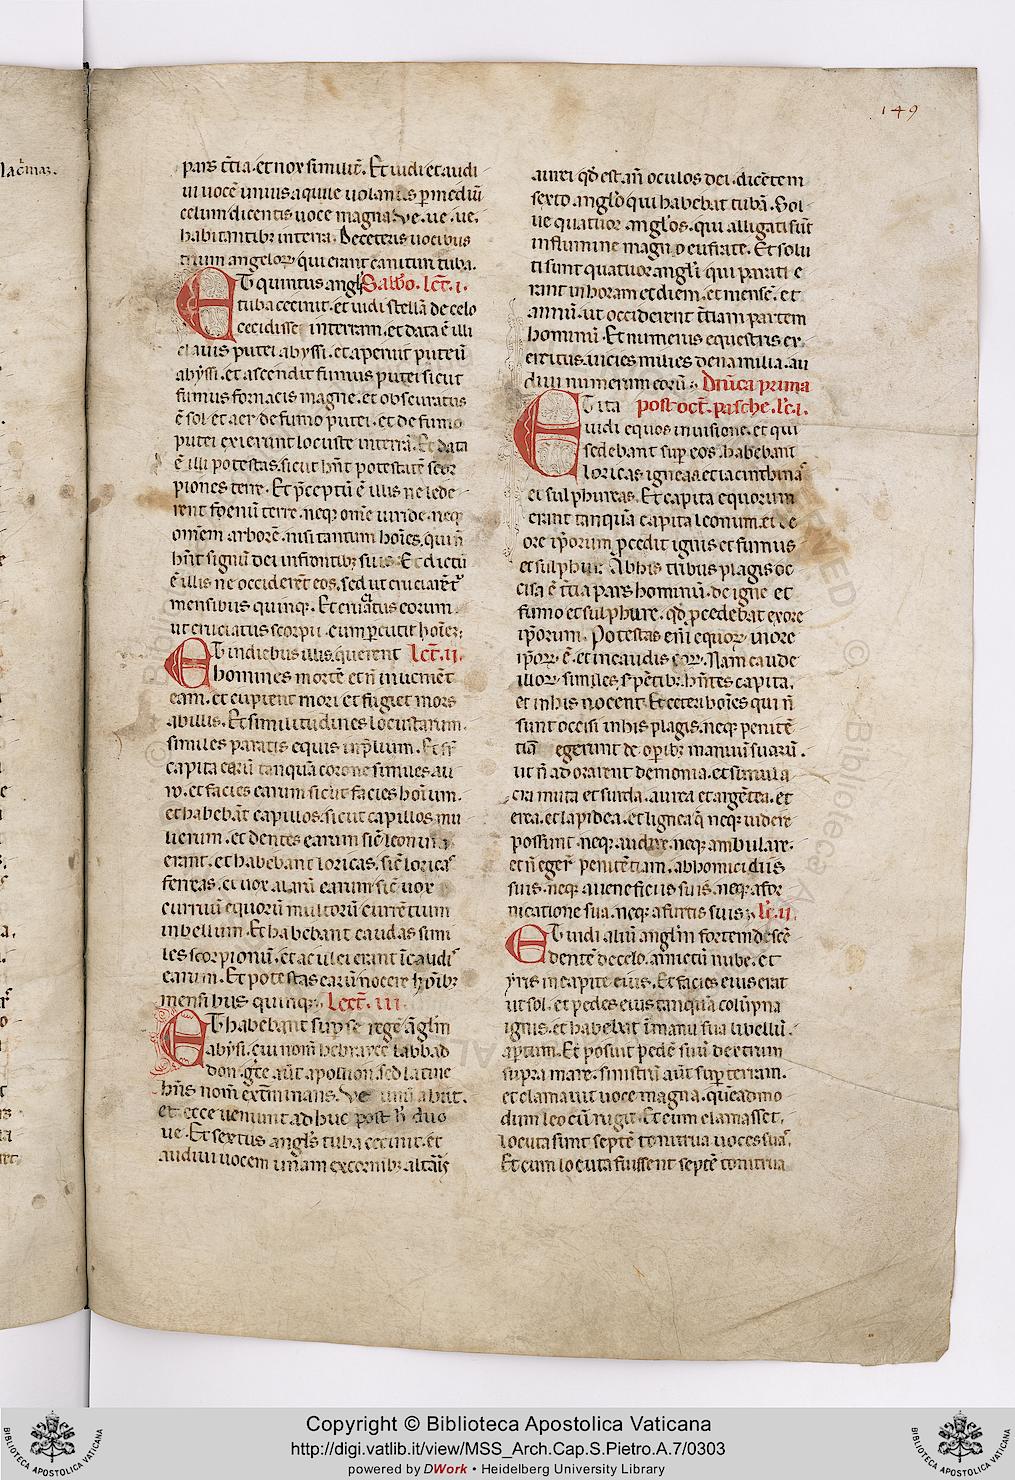 lac̄maz.
149
pars t̄tia. et nox similit̄. Et uidi et audi
ui uocē unius aquile uolantis p̱ mediū
celum dicentis uoce magna. ve. ue. ue.
habitantibꝫ in terra. De ceteris uocibus
trium angeloꝝ qui erant canituri tuba.
ET quintus angl̓s Sabb̓o. lc̄t. i.
tuba cecinit. et uidi stellā de celo
cecidisse in terram. et data ē illi
clauis putei abyssi. et aperuit puteū
abyssi. et ascendit fumus putei sicut
fumus fornacis magne. et obscuratus
ē sol et aer de fumo putei. et de fumo
putei exierunt locuste in terrā. Et data
ē illi potestas. sicut hn̄t potestatē scor
piones terre. Et p̄ceptū ē illis ne lede
rent foenū terre. neqꝫ om̄e uiride. neqꝫ
om̄em arborē. nisi tantum hoīes. qui n̄
hn̄t signū dei in frontibꝫ suis. Et dictū
ē illis ne occiderēt eos. sed ut cruciarēt᷑
mensibus quinqꝫ. Et cruciatus eorum.
ut cruciatus scorpii. cum p̱cutit hoīez;
ET in diebus illis. querent lc̄t. ii.
homines mortē et n̄ inueniēt
eam. et cupient mori et fugiet mors
ab illis. Et similitudines locustarum.
similes paratis equis in p̄lium. Et sr̄
capita earū tanquā corone similes au
ro. et facies earum sicut facies hoīum.
et habebāt capillos. sicut capillos mu
lierum. et dentes earum sic̄ leonum
erant. et habebant loricas. sic̄ loricas
ferreas. et uox alarū earum sic̄ uox
curruū equorū multorū currētium
in bellum. Et habebant caudas simi
les scorpionū. et aculei erant ī caudis
earum. Et potestas earū nocere hoībꝫ
mensibus quinqꝫ. Lect̄. iii.
ET habebant sup̱ se regē āgl̄m
abysi. cui nom̄ hebrayce labbad
don. gr̄e aūt apollion. sed latine
hn̄s nom̄ ext̄minans. Ve unū abiit.
et ecce ueniunt adhuc post h̄ duo
ue. Et sextus angl̓s tuba cecinit. et
audiui uocem unam ex cornibꝫ altar̄is
aurei qd̓ est añ oculos dei. dicētem
sexto angl̓o qui habebat tubā. Sol
ue quatuor angl̓os. qui alligati sūt
in flumine magno eufrate. Et solu
ti sunt quatuor angl̓i qui parati e
rant in horam et diem. et mensē. et
annū. ut occiderent t̄tiam partem
hominū. Et numerus equestris ex
ercitus. uicies milies dena milia. au
diui numerum eorū. Dn̄ica prima
ET ita post oct̄. pasche. lc̄. i.
uidi equos in uisione. et qui
sedebant sup̱ eos. habebant
loricas igneas et iacinthinas
et sulphureas. Et capita equorum
erant tanquā capita leonum. et de
ore ip̄orum p̱cedit ignis et fumus
et sulphur. Ab his tribus plagis oc
cisa ē t̄tia pars hominū. de igne et
fumo et sulphure. qd̓ p̱cedebat ex ore
ip̄orum. Potestas em̄ equoꝝ in ore
ip̄oꝝ ē. et in caudis eoꝝ. Nam caude
illoꝝ similes sp̱ētibꝫ. hn̄tes capita.
et in his nocent. Et ceteri hoīes qui n̄
sunt occisi in his plagis. neqꝫ penitē
tiā egerunt de op̱ibꝫ manuū suarū.
ut n̄ adorarent demonia. et simula
cra muta et surda. aurea et argētea. et
erea. et lapidea. et lignea q̄ neqꝫ uidere
possunt. neqꝫ audire. neqꝫ ambulare.
et n̄ eger̄ penitētiam. ab homicidiis
suis. neqꝫ a ueneficiis suis. neqꝫ a for
nicatione sua. neqꝫ a furtis suis. lc̄. ii
ET uidi aliū angl̄m fortem descē
dentē de celo. amictū nube. et
yris in capite eius. Et facies eius erat
ut sol. et pedes eius tanquā columpna
ignis. et habebat ī manu sua libellū.
ap̱tum. Et posuit pedē suū dextrum
supra mare. sinistrū aūt sup̱ terram.
et clamauit uoce magna. quēadmo
dum leo cū rugit. Et cum clamasset.
locuta sunt septē tonitrua uoces suas.
Et cum locuta fuissent septē tonitrua
Copyright © Biblioteca Apostolica Vaticana
http://digi.vatlib.it/view/MSS_Arch.Cap.S.Pietro.A.7/0303
powered by DWork • Heidelberg University Library
BIBLIOTECA APOSTOLICA VATICANA
BIBLIOTECA APOSTOLICA VATICANA